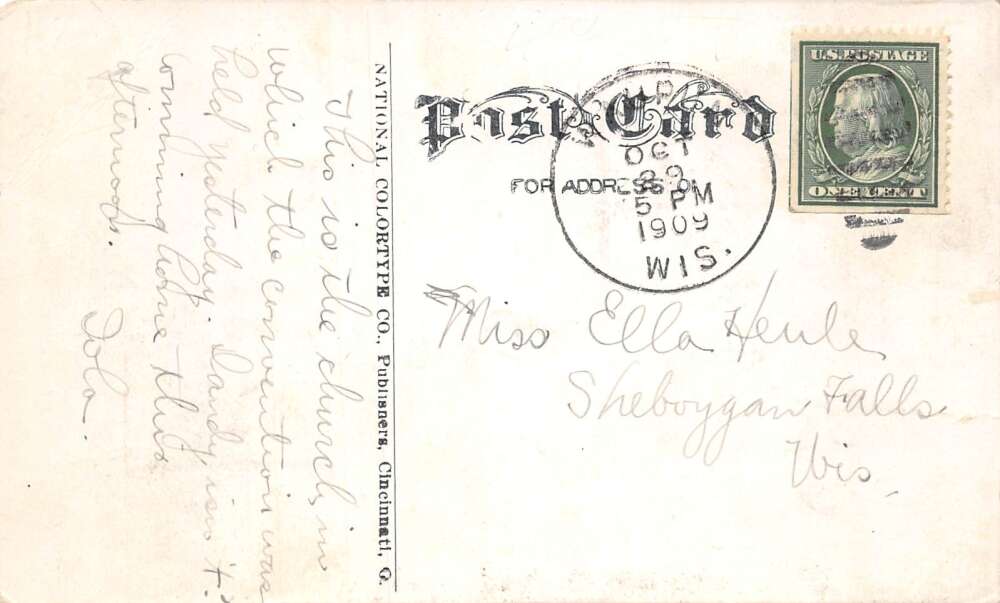 This is the church, in
which the convention was
held yesterday. Dandy isn't it?
comming home this
afternoon.
Iola.
NATIONAL COLORTYPE CO., Publishers, Cincinnati, O.
Post Card
FOR ADDRESS O
OCT
29
5 PM
1909
WIS.
U.S. POSTAGE
ONE CENT
Miss Ella Henle
Sheboygan Falls
Wis.